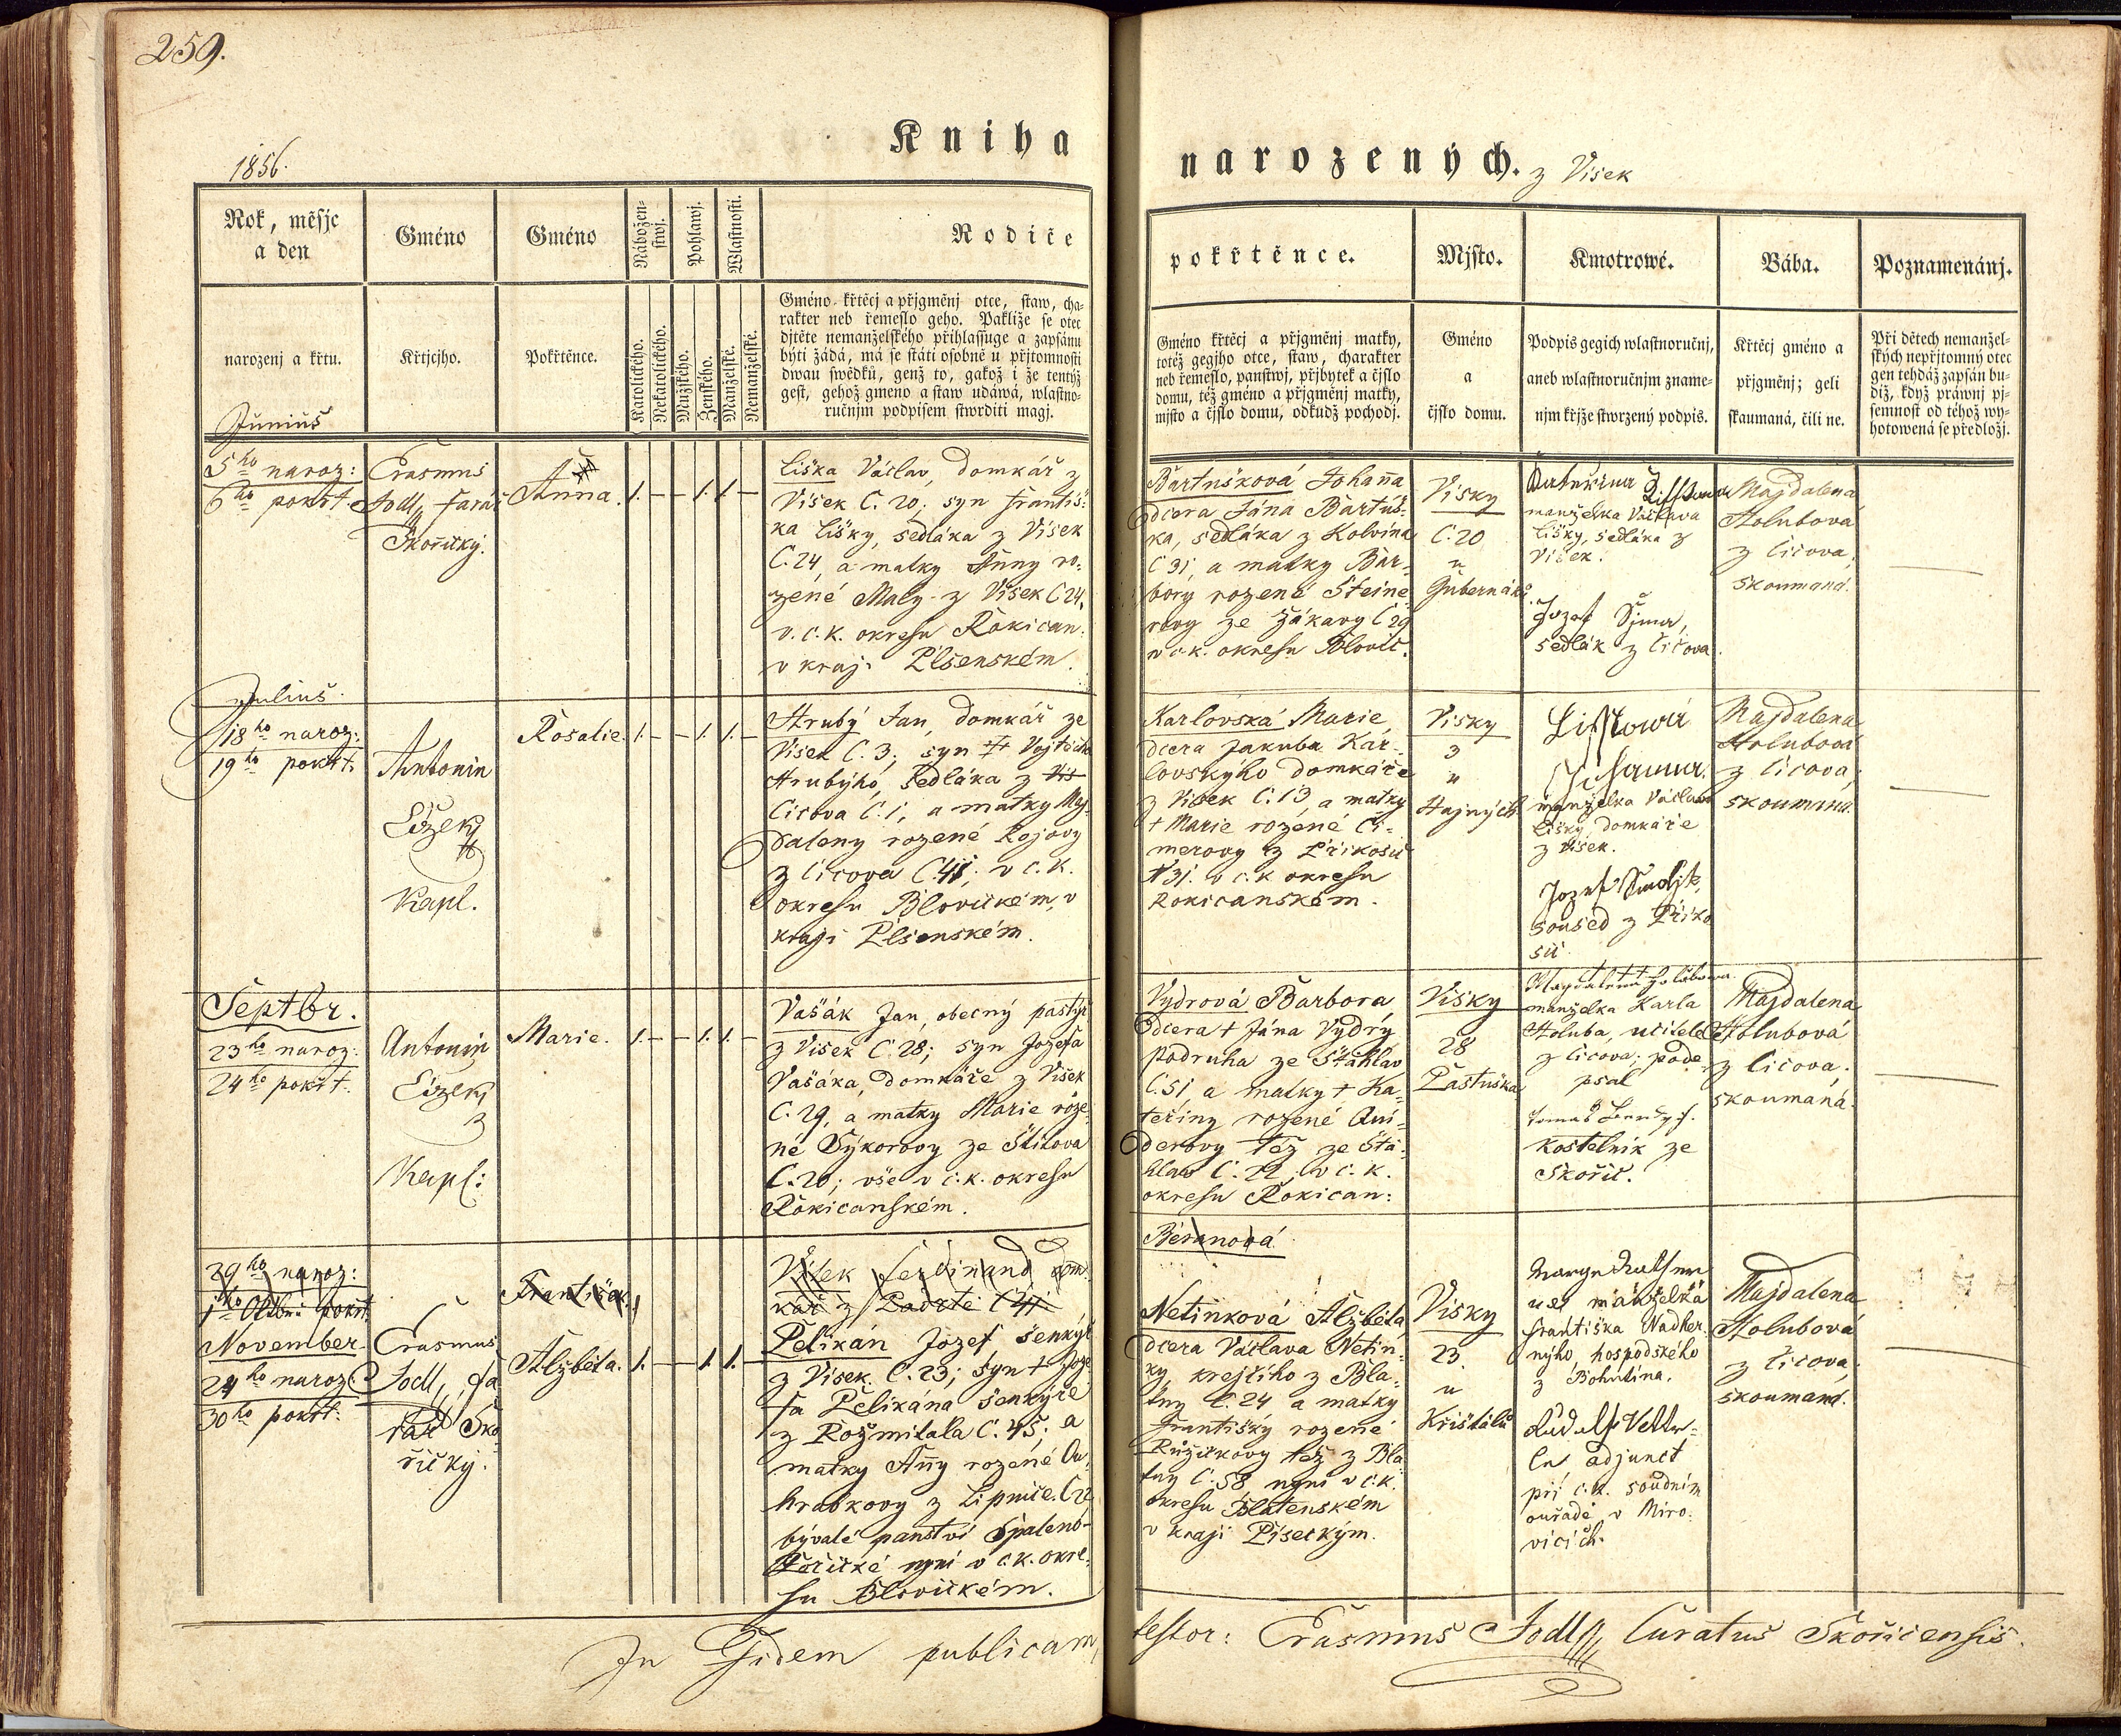 259.
Kniha
narozených. z Visek
1856.
Rok, měsjc
a den
Gméno
Gméno
Nábožen-
stwj.
Pohlawj.
Wlastnosti.
Rodiče
pokřtěnce.
Mjsto.
Kmotrowé.
Bába.
Poznamenánj.
narozenj a křtu.
Křtjcjho.
Pokřtěnce.
Katolického.
Nekatolického.
Mužského.
Ženského.
Manželské.
Nemanželské.
Gméno křtěcj a přjgměnj otce, staw, cha-
rakter neb řemeslo geho. Pakliže se otec
djtěte nemanželského přihlassuge a zapsánu
býti žádá, má se státi osobně u přjtomnosti
dwau swědků, genž to, gakož i že tentýž
gest, gehož gmeno a staw udáwá, wlastno-
ručnjm podpisem stwrditi magj.
Gméno křtěcj a přjgměnj matky,
totéž gegjho otce, staw, charakter
neb řemeslo, panstwj, přjbytek a čjslo
domu, též gméno a přjgměnj matky,
mjsto a čjslo domu, odkudž pochodj.
Gméno
a
čjslo domu.
Podpis gegich wlastnoručnj,
aneb wlastnoručnjm zname-
njm křjže stwrzený podpis.
Křtěcj gméno a
přjgměnj; geli
skaumaná, čili ne.
Při dětech nemanžel-
ských nepřjtomný otec
gen tehdáž zapsán bu-
diž, když práwnj pj-
semnost od téhož wy-
hotowená se předložj.
Junius
5ho naroz:
6ho pokřt.
Erasmus
Jodl, farář
Skořický.
Anna.
1. — — 1. 1. —
Liška Václav, domkář z
Visek C. 20; syn Františ-
ka Lišky, sedláka z Visek
C. 24, a matky Anny ro-
zené Maly z Visek C 24,
v c. k. okresu Rokican:
v kraji Plsenském.
Bartušková Johanna
dcera Jána Bartuš-
ka, sedláka z Kolvína
C 31, a matky Bar-
bory rozené Steine
rovy ze Žákavy C 29
v c. k. okresu Blovic.
Visky
C. 20
u
Gubernáků
Kateřina Lisskowa
manželka Václava
Lišky, sedláka z
Visek.
Jozef Šjma,
sedlák z Číčova.
Majdalena
Holubová
z Číčova;
skoumaná.
Julius.
18ho naroz:
19ho pokřt.
Antonín
Čížek
Kapl.
Rosalie.
1. — — 1. 1. —
Hrubý Jan, domkář ze
Visek C. 3; syn + Vojtěcha
Hrubýho, sedláka z Vis
Cicova C. 1, a matky Maj-
daleny rozené Rojovy
z Cicova C. 41; v c. k.
okresu Blovickém, v
kraji Plsenském.
Karlovská Marie,
dcera Jakuba Kar-
lovskýho domkáře
z Visek C. 13, a matky
+ Marie rozené Ci-
merovy z Příkosic
N 31. v c. k okresu
Rokicanském.
Visky
3
u
Hajných
Lisstowá
Johanna.
manželka Václava
Lišky, domkáře
z Visek.
Jozef Smoljk,
soused z Příko
sic.
Majdalena
Holubová
z Cicova;
skoumaná.
Septbr.
23ho naroz:
24ho pokřt.
Antonín
Čížek
Kapl:
Marie.
1. — — 1. 1. —
Vašák Jan, obecný pastýř
z Visek C. 28; syn Jozefa
Vašáka, domkáře z Visek
C. 29, a matky Marie roze-
né Sýkorovy ze Štítova
C. 20; vše v c. k. okresu
Rokicanském.
Vydrová Barbora,
dcera + Jána Vydry
podruha ze Štáhlav
C. 51, a matky + Ka-
teřiny rozené Qui-
derovy též ze Štá-
hlav C. 22; v c. k.
okresu Rokican:
Visky
28
Pastuška
+++
Magdalena Holubowa
manželka Karla
Holuba, učitele
z Cicova; pode
psal
kostelník ze
Skořic.
Majdalena
Holubová
z Cicova;
skoumaná.
29ho naroz:
1ho Oktbri pokřt.
František.
Vlček Ferdinand dom-
kář z Padrtě C 41
Beranová
November
29ho naroz:
30ho pokřt:
Erasmus
Jodl, fa
rář Sko
řický.
Alžběta.
1. — 1. 1.
Pelikán Jozef, šenkýř
z Visek C. 23; syn + Joze
fa Pelikána šenkýře
z Rožmitala C. 45; a
matky Anny rozené Ou-
hrabkovy z Lipnice C 22
bývalé panství Spaleno-
Pořické nyní v c. k. okre-
su Blovickém.
Netinková Alžběta,
dcera Václava Netin-
ky, krejčího z Bla-
tny C. 24 a matky
Františky rozené
Růžičkovy též z Bla
tny C. 58 nyní v c. k.
okresu Blatenském
v kraji Píseckým.
Visky
23.
u
Krištálů
manželka
Františka Nadher-
nýho, hospodského
z Bohutína.
adjunct
při c. k. soudním
ouřadě v Miro-
vicích.
Majdalena
Holubová
z Cicova;
skoumaná.
In Fidem publicam
testor: Erasmus Jodl, Curatus Skořicensis.